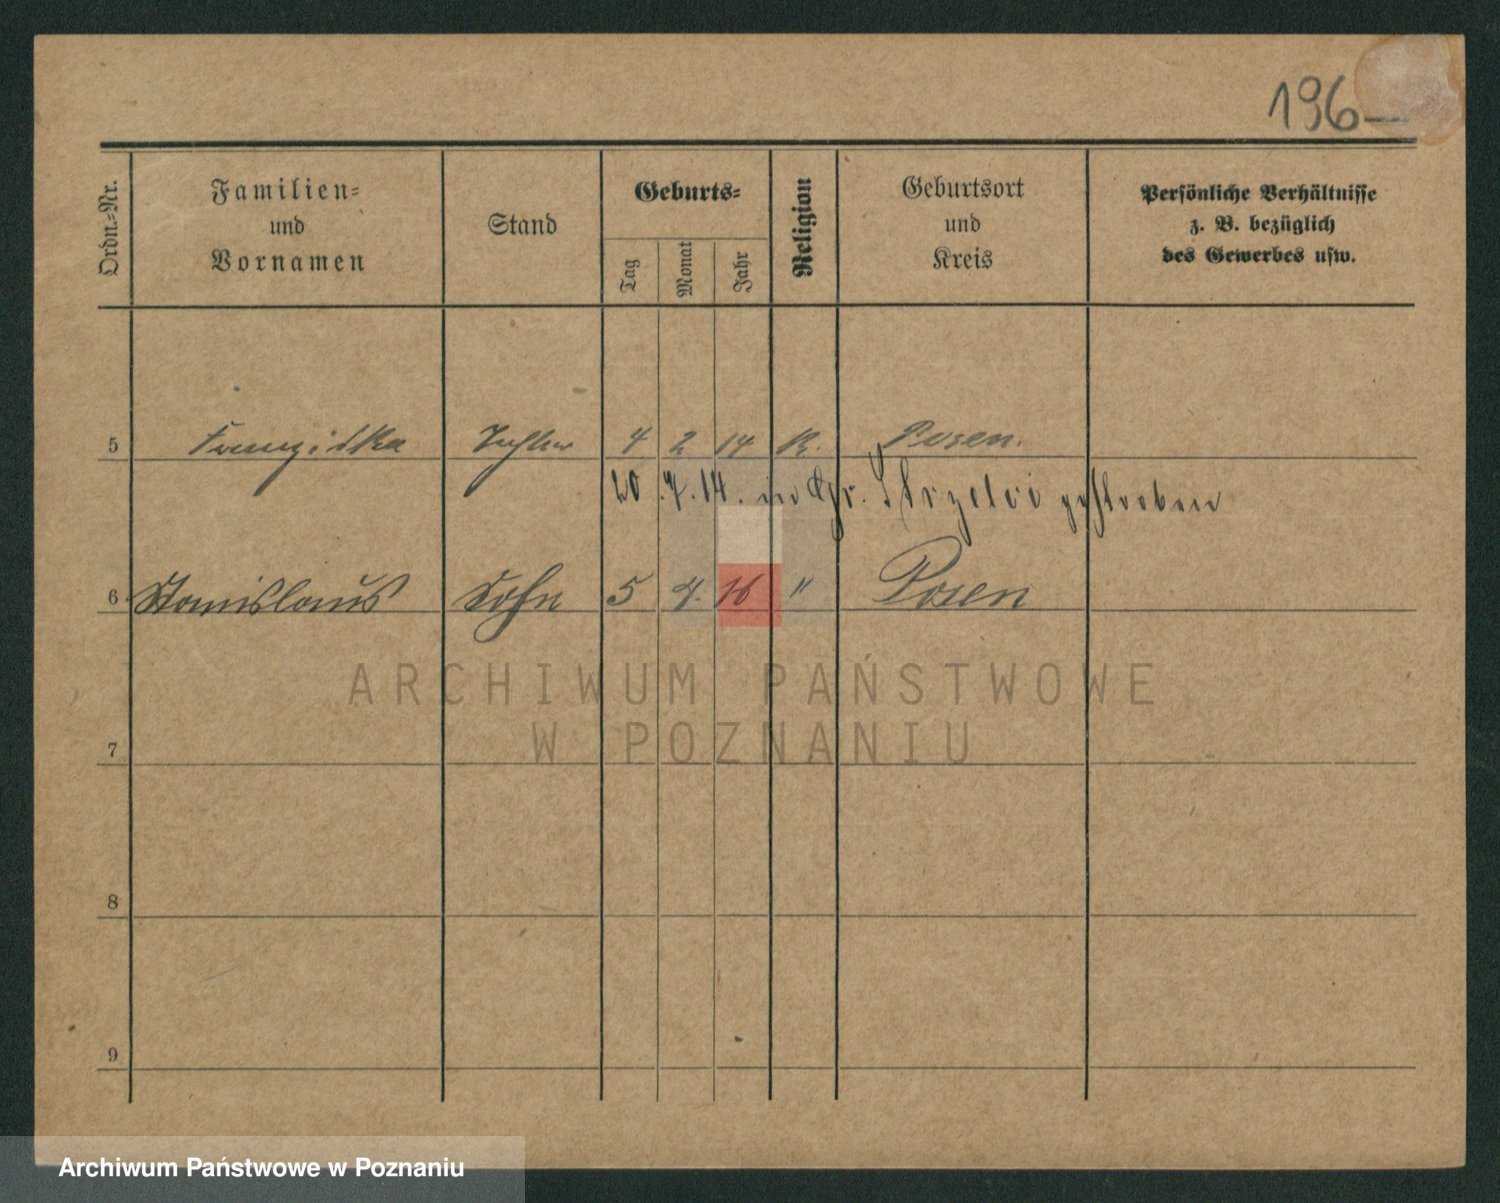 196
Ordn.-Nr.
Familien-
und
Vornamen
Stand
Geburts-
Tag Monat Jahr
Religion
Geburtsort
und
Kreis
Persönliche Verhältnisse
z. B. bezüglich
des Gewerbes usw.
5 Franziska Tochter 4 2 14 K. Posen.
20.7.14. in Gr. Strzelci gestorben
6 Stanislaus Sohn 5 4. 16 " Posen
ARCHIWUM PAŃSTWOWE
W POZNANIU
7
8
9
Archiwum Państwowe w Poznaniu